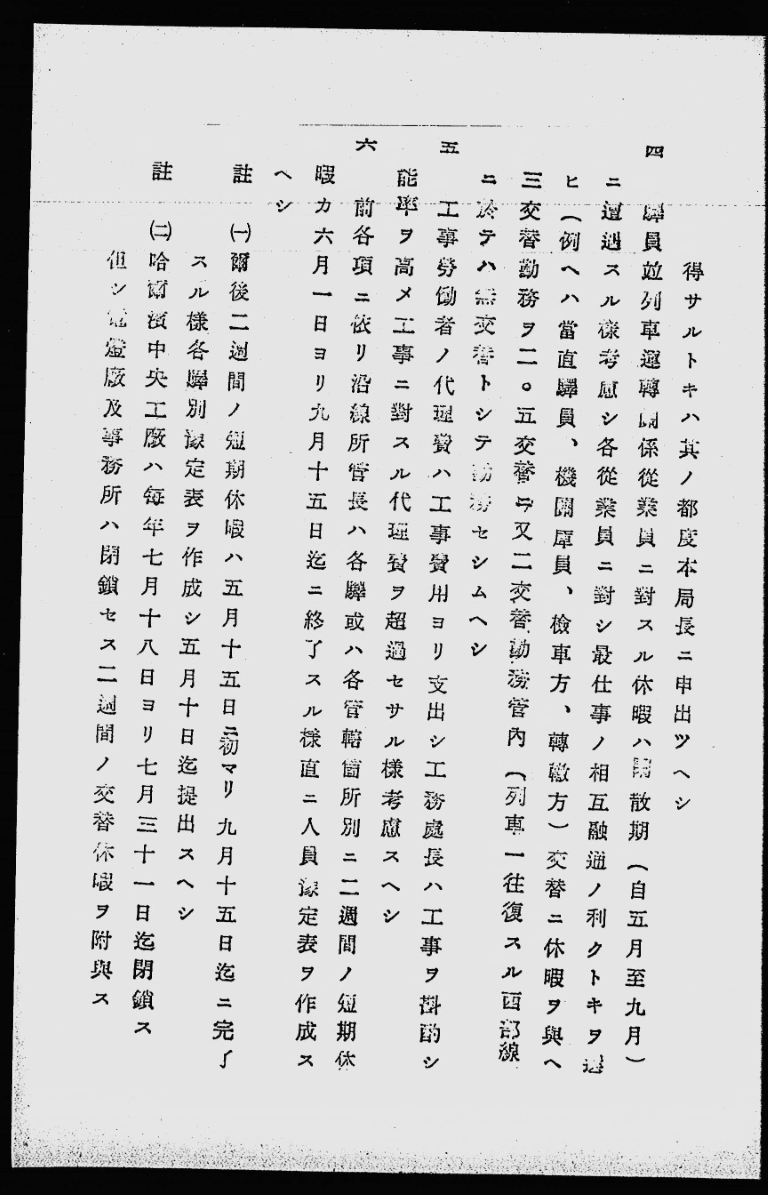 得サルトキハ其ノ都度本局長ニ申出ツヘシ
四 驛員並列車運轉關係從業員ニ對スル休暇ハ閑散期（自五月至九月）
ニ遭遇スル樣考慮シ各從業員ニ對シ最仕事ノ相互融通ノ利クトキヲ選
ヒ（例ヘハ當直驛員、機關庫員、檢車方、轉轍方）交替ニ休暇ヲ與ヘ
三交替勤務ヲ二。五交替ニ又二交替勤務管内（列車一往復スル西部線
ニ於テハ無交替トシテ勤務セシムヘシ
五 工事勞働者ノ代理費ハ工事費用ヨリ支出シ工務處長ハ工事ヲ斟酌シ
能率ヲ高メ工事ニ對スル代理費ヲ超過セサル樣考慮スヘシ
六 前各項ニ依リ沿線所管長ハ各驛或ハ各管轄箇所別ニ二週間ノ短期休
暇カ六月一日ヨリ九月十五日迄ニ終了スル樣直ニ人員豫定表ヲ作成ス
ヘシ
註 ㈠爾後二週間ノ短期休暇ハ五月十五日ニ初マリ九月十五日迄ニ完了
スル樣各驛別豫定表ヲ作成シ五月十日迄提出スヘシ
註 ㈡哈爾濱中央工廠ハ每年七月十八日ヨリ七月三十一日迄閉鎖ス
但シ電燈廠及事務所ハ閉鎖セス二週間ノ交替休暇ヲ附與ス